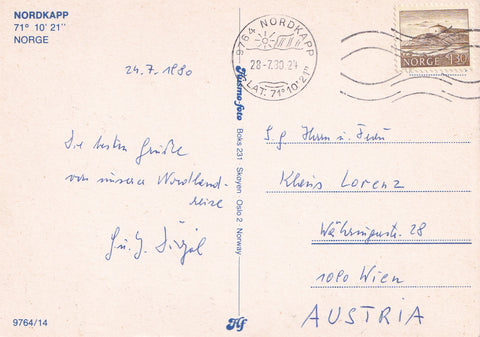 NORDKAPP
71° 10' 21''
NORGE
24.7.1980
Die besten Grüße
von unserer Nordland-
reise
9764/14
Husmo-foto Boks 231 Skøyen Oslo 2 Norway
Hf
9764 NORDKAPP
28-7.80.21
LAT. 71°10'21"
NORGE 130
S.g. Herrn u. Frau
Klaus Lorenz
Währingerstr. 28
1090 Wien
AUSTRIA